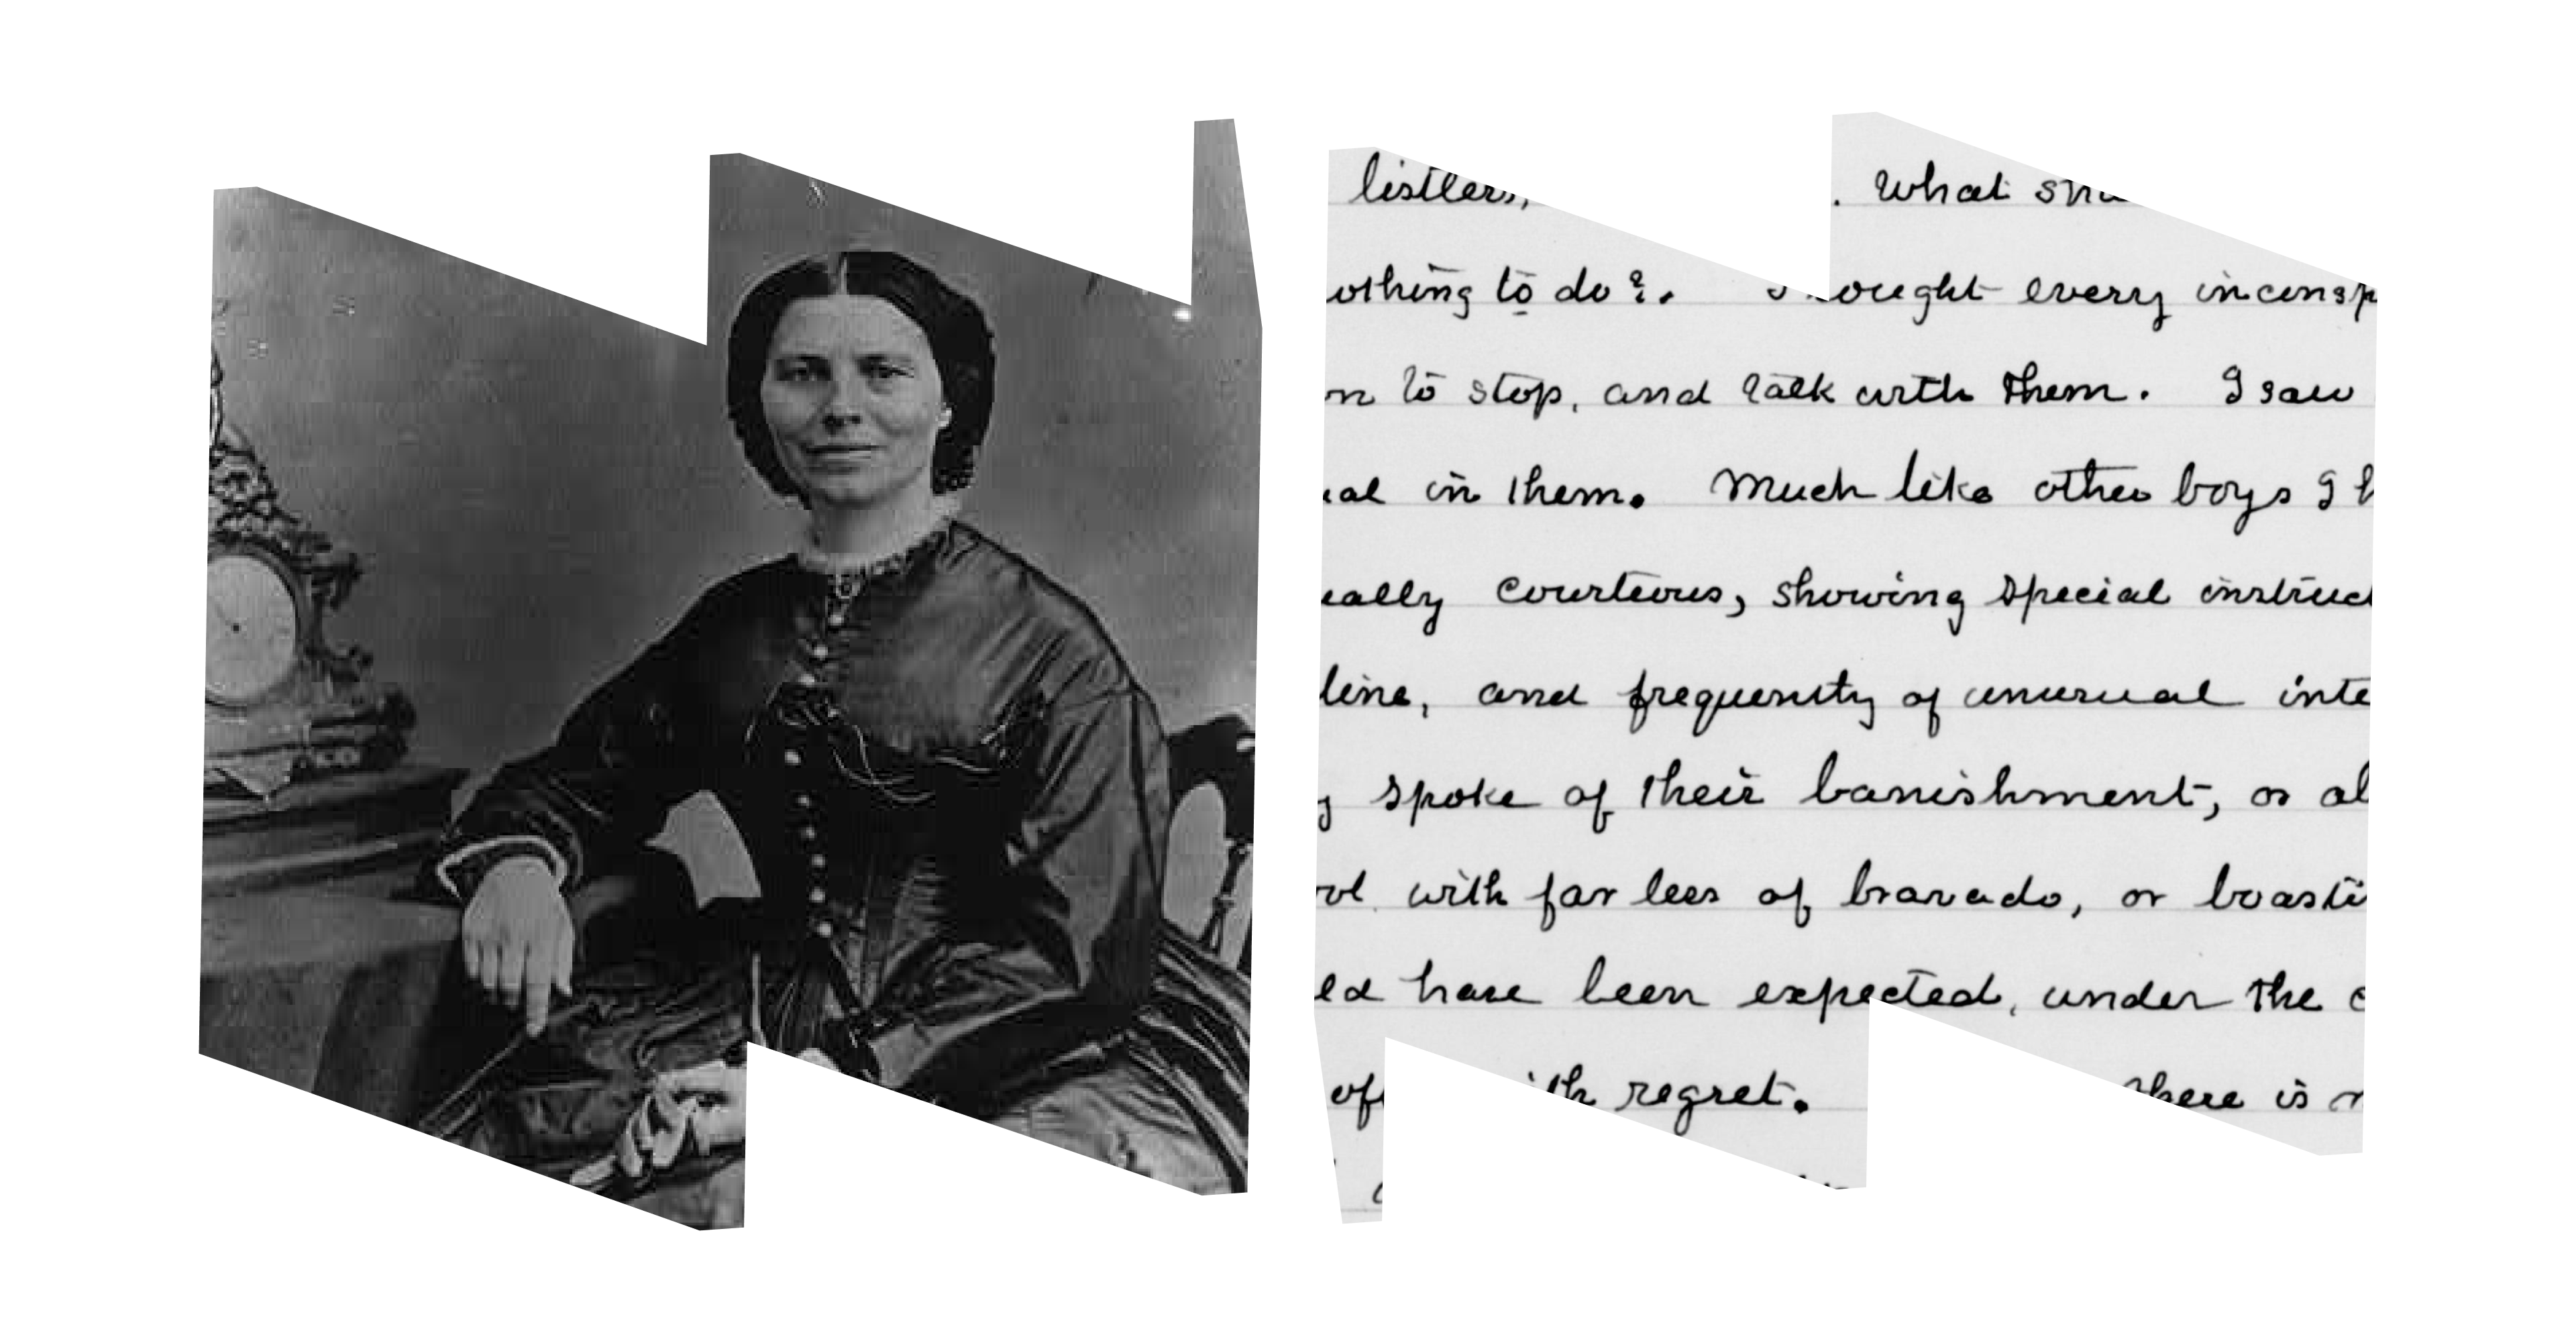 listless, . What
othing to do? . ought every incensp
on to stop, and talk with them. I saw
ual in them. Much like other boys I h
eally courteous, showing special instruct
line, and frequently of unusual inte
y spoke of their banishment, or al
ol with far less of bravado, or boasti
ld have been expected, under the c
of regret. here is